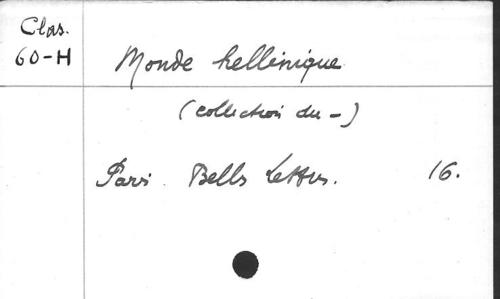 Clas.
60-H
Monde hellénique
(collection du -)
Paris. Belles Lettres. 16.